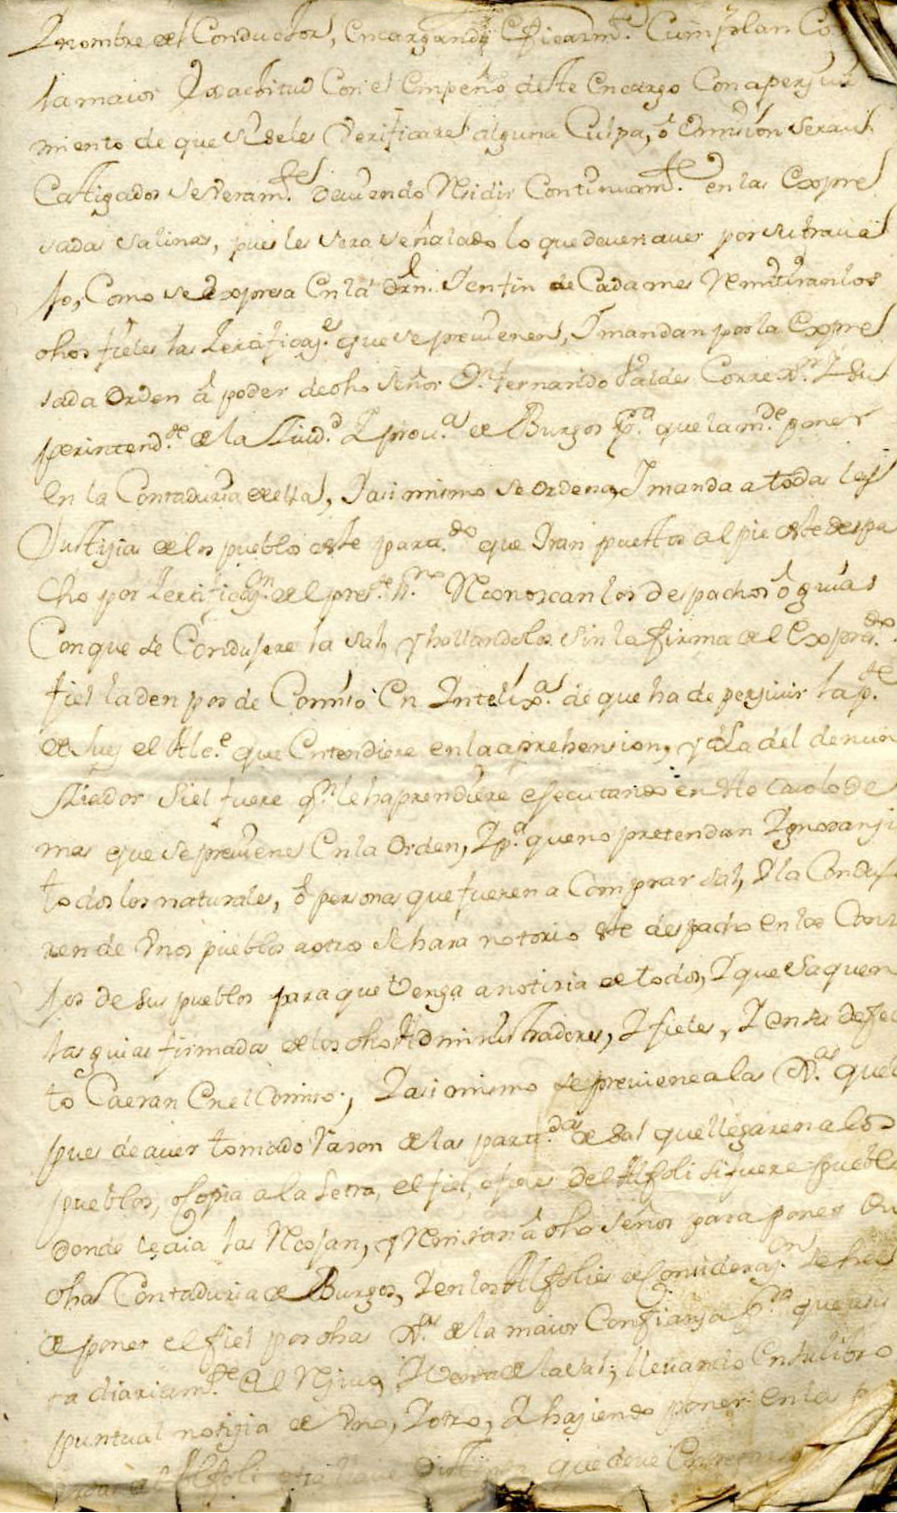 Y nombre del Conductor, encargando eficazm.te Cumplan Co
la maior Exactitud Con el empeño deste encargo Con aperjui
miento de que si seles Verificare alguna Culpa, ó Omision seran
Castigados Severam.te deviendo Residir Continuam.te en las expre
sadas Salinas, pues les sera señalado lo que deven aver por su travai
jo, Como se expresa en la orn. Y en fin de Cada mes Remitiran los
dhos fieles las Zertificaz.es que se previenen, Y mandan por la expre
sada Orden á poder de dho Señor Dn. fernando Valdes Correx.or Y Su
perintend.te de la Ziud.d Y prov.a de Burgos p.a que la m.de poner
en la Contaduria de ella, Y asi mismo se ordena, Y manda a todas las
Justizias de los pueblos deste part.do que Yran puestos al pie deste despa
cho por Zertificaz.on del pres.te s.no Reconozcan los despachos ó guias
Con que se Condujere la Sal, y hallandolos sin la firma del Expres.do
fiel la den por de Comiso en Intelix.a de que ha de perzivir la p.te
de Juez el Alc.e que entendiere en la aprehension, y la del denun
ziador Siel fuere q.n le haprendiere ejecutando en dho caso lo de
mas que se previene en la Orden, Y p.a que no pretendan Ygnoranzi
todos los naturales, ó personas que fueren a Comprar Sal, ó la Conduj
ren de Unos pueblos a otros se hara notorio este despacho en los Conze
jos de sus pueblos para que Venga a notizia de todos, Y que Saquen
las guias firmadas de los dhos Administradores, Y fieles, Y en su defec
to Caeran en el Comiso; Y asi mismo se previene a las Jus.as que de
pues de aver tomado razon de las part.das de Sal que llegaren a los
pueblos, Copia a la letra, el fiel, o fieles del Alfoli si fuere pueblo
donde le aia las Recojan, y Remitan á dho Señor para poner en
dha Contaduria de Burgos, Y en los Alfolies de Consideraz.on se ha
de poner el fiel por dhas Jus.as de la maior Confianza p.a que asis
ta diariam.te al Rejivo, Y Venta de la Sal; llevando en su libro
puntual notizia de Uno, Y otro, Y haziendo poner en las p
del Alfoli distinta que deve